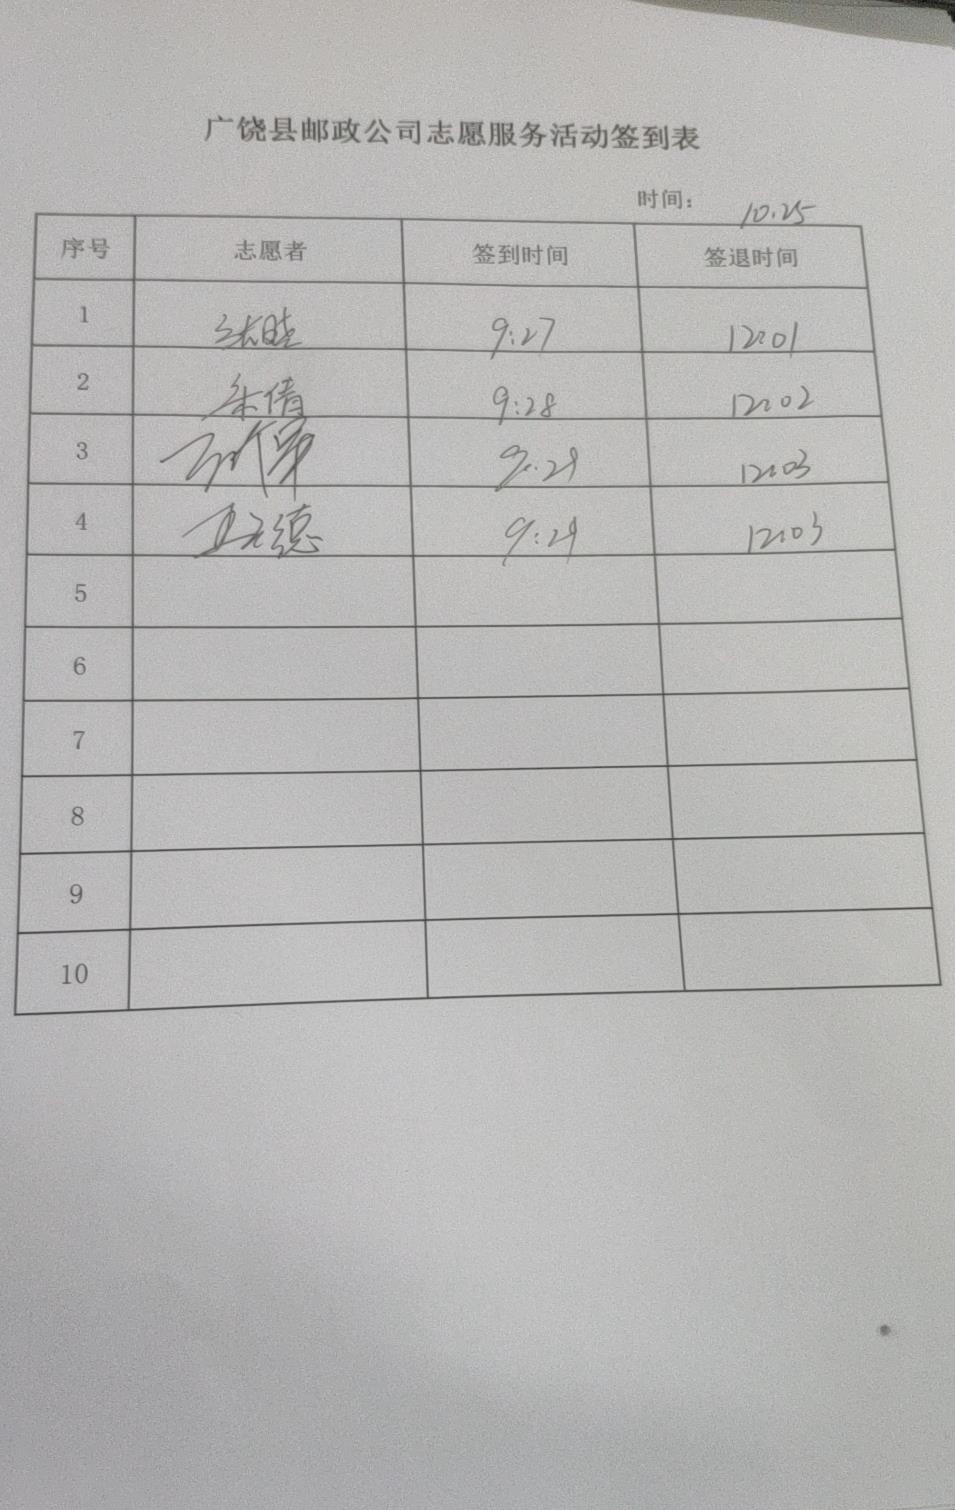 广饶县邮政公司志愿服务活动签到表
时间: 10.25
序号 志愿者 签到时间 签退时间
1 张晓 9:27 12:01
2 朱倩 9:28 12:02
3 9:29 12:03
4 德 9:29 12:03
5
6
7
8
9
10